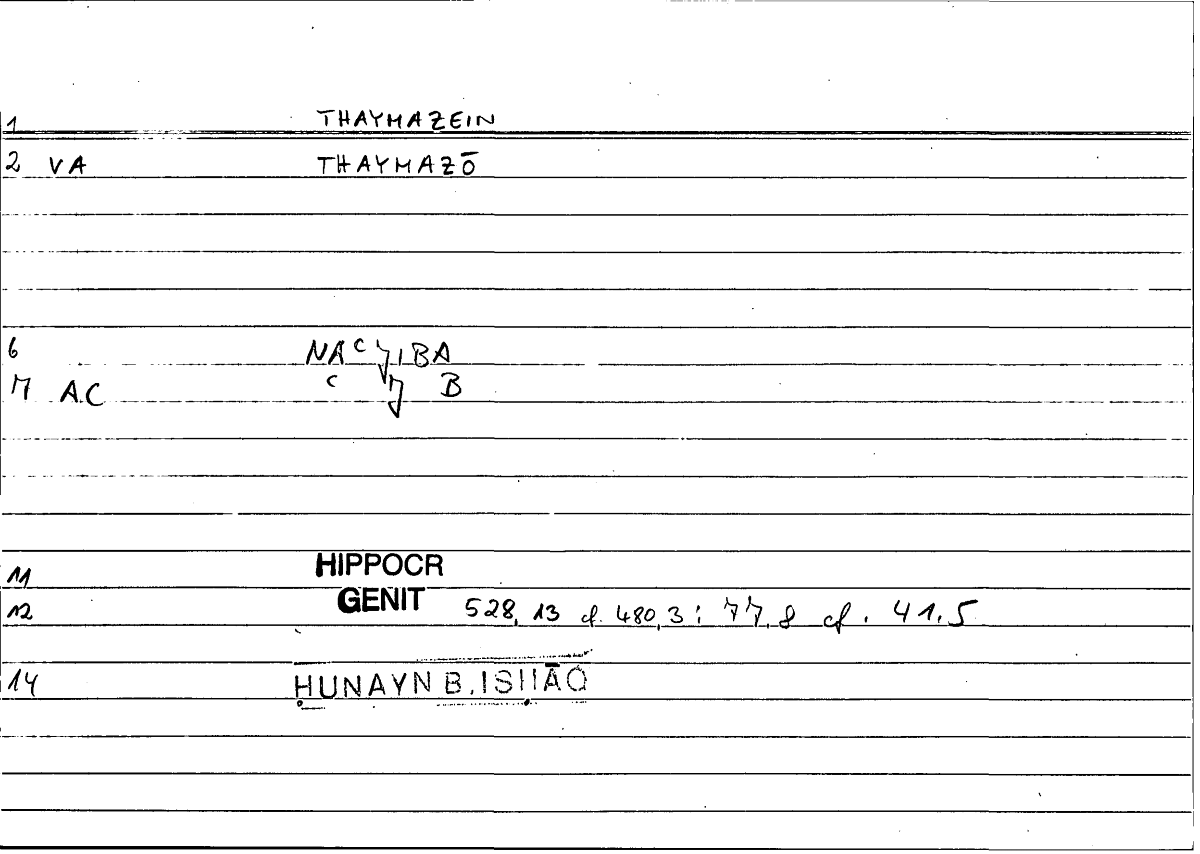 1 THAYMAZEIN
2 VA THAYMAZŌ
6 NAᶜǦIBA
7 AC ᶜ Ǧ B
11 HIPPOCR
12 GENIT 528,13 cf. 480,3; 77,8 cf. 41,5
14 ḤUNAYN B. ISḤĀQ